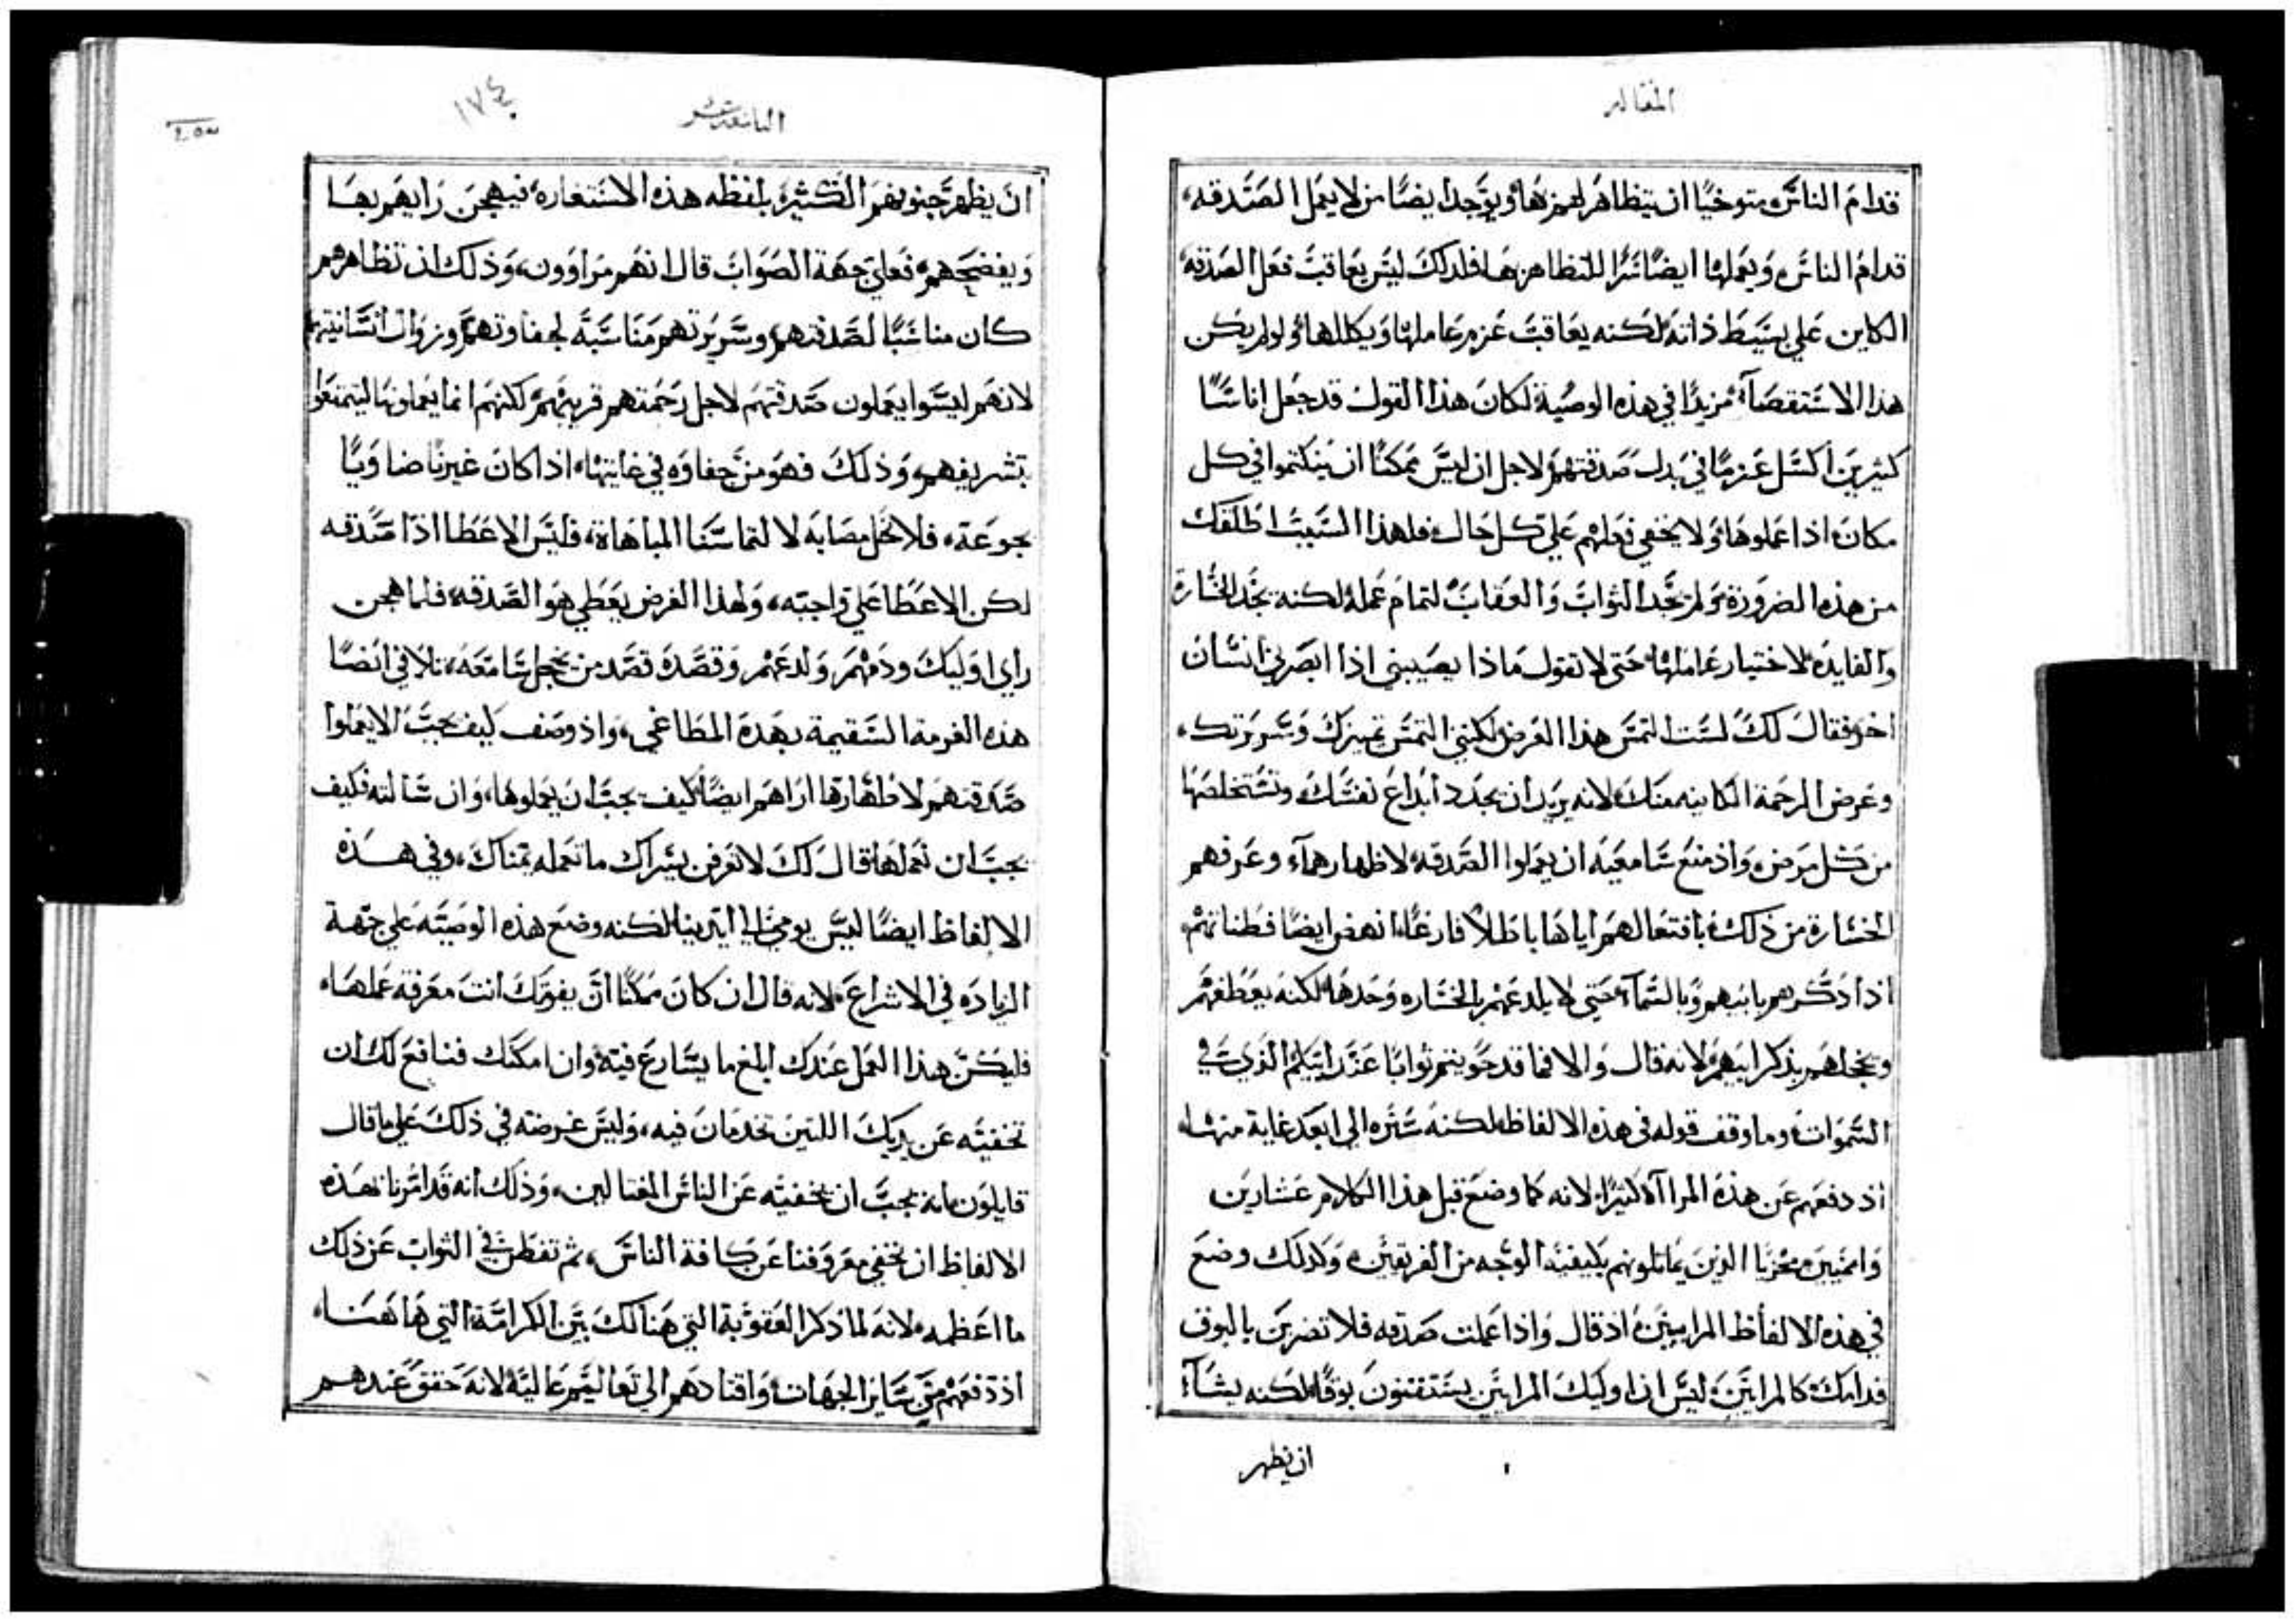 المقاله
قدام الناس متوخيًا ان يتظاهر لهم بها ويوجد ايضًا من لا يعمل الصدقه
قدام الناس ويعملها ايضًا سرًا للتظاهر بها فلذلك ليس يعاقب فعل الصدقه
الكاين على بسيط ذاته لكنه يعاقب عزم عاملها ويكللها ولو لم يكن
هذا الاستقصآء مزيدًا في هذه الوصية لكان هذا القول قد جعل اناسًا
كثيرين اكسل عزمًا في بدل صدقتهم لاجل ان ليس ممكنًا ان ينكتموا في كل
مكان اذا عملوها ولا يخفي فعلهم علي كل حال فلهذا السبب اطلقك
من هذه الضرورة ولم يحد الثواب والعقاب لتمام عمله لكنه يحد الخسارة
والفايده لاختيار عاملها حتى لا تقول ماذا يصيبني اذا ابصرني انسان
اخر فقال لك لست التمس هذا الغرض لكنني التمس تميزك وسريرتك
وغرض الرحمة الكاينه منك لانه يريد ان يجدد ابداع نفسك وتستخلصها
من كل مرض واذ منع سامعيه ان يعملوا الصدقه لاظهارهآ وعرفهم
الخسارة من ذلك بافتعالهم اياها باطلاً فارغًا انهض ايضًا فطناتهم
اذا ذكرهم بابيهم وبالسمآء حتى لا يلدعهم بالخساره وحدها لكنه يعطفهم
ويخجلهم بذكر ابيهم لانه قال والا فما قد حويتم ثوابًا عند ابيكم الذي في
السموات وما وقف قوله في هذه الالفاظ لكنه ستره الي ابعد غاية منها
اذ دفعهم عن هذه المراآة كثيرًا لانه كما وضع قبل هذا الكلام عشارين
واممين مخزيًا الذين يماثلونهم بكيفية الوجه من الفريقين وكذلك وضع
في هذه الالفاظ المرايين اذ قال واذا عملت صدقه فلا تضربن بالبوق
قدامك كالمرايين ليس ان اوليك المرايين يستقنون بوقًا لكنه يشآء
ان يظهر
التاسعة عشر
١٧٤
ان يظهر جنونهم الكثير بلفظه هذه الاستعارة فيهجن رايهم بها
ويفضحهم فعلي جهة الصواب قال انهم مراوون وذلك ان تظاهرهم
كان مناسبًا لصدقتهم وسريرتهم مناسبة لجفاوتهم وزوال انسانيتهم
لانهم ليسوا يعملون صدقتهم لاجل رحمتهم قريبهم لكنهم انما يعملونها ليتمتعوا
بتشريفهم وذلك فهو من جفاوه في غايتها اذا كان غيرنا ضاويًا
بجوعة فلا نحل مصابه لالتماسنا المباهاة فليس الاعطا اذًا صدقه
لكن الاعطا علي واجبته ولهذا الغرض يعطي هو الصدقة فلما هجن
راي اوليك وذمهم ولدعهم وقصده قصد من يخجل سامعه تلافي ايضًا
هذه الغرمة السقيمة بهذه المطاغي واذ وصف كيف يجب الا يعملوا
صدقتهم لاظهارها اراهم ايضًا كيف يجب ان يعملوها وان سالته فكيف
يجب ان نعملها قال لك لا تعرفن يسراك ما تعمله يمناك وفي هذه
الالفاظ ايضًا ليس يومي الي اليدين لكنه وضع هذه الوصيه علي جهة
الزياده في الاشراع لانه قال ان كان ممكنًا ان يفوتك انت معرفة عملها
فليكن هذا العمل عندك ابلغ ما يسارع فيه وان امكنك فنافع لك ان
تخفيه عن يديك اللتين تخدمان فيه وليس غرضه في ذلك علي ما قال
قايلون بانه يجب ان نخفيه عن الناس المغتالين وذلك انه قد امرنا بهذه
الالفاظ ان نخفي معروفنا عن كافة الناس ثم تفطن في الثواب عن ذلك
ما اعظمه لانه لما ذكر العقوبة التي هنالك بين الكرامة التي هاهنا
اذ دفعهم من ساير الجهات واقتادهم الي تعاليم عالية لانه حقق عندهم